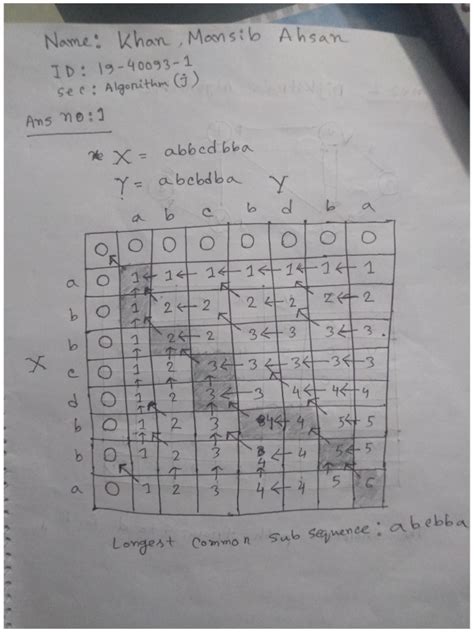 Name: Khan, Mansib Ahsan
ID: 19-40093-1
sec: Algorithm (J)
Ans no:1
X = abbcdbba
Y = abcbdba
Y
a b c b d b a
0 0 0 0 0 0 0 0
a 0 1 1← 1← 1← 1← 1← 1
b 0 1 2← 2 2← 2 2← 2
b 0 1 2← 2 3← 3 3← 3
X
c 0 1 2 3← 3← 3← 3← 3
d 0 1 2 3← 3 4← 4← 4
b 0 1 2 3 4← 4 5← 5
b 0 1 2 3 4← 4 5← 5
a 0 1 2 3 4← 4 5 6
Longest common sub sequence: abcbba